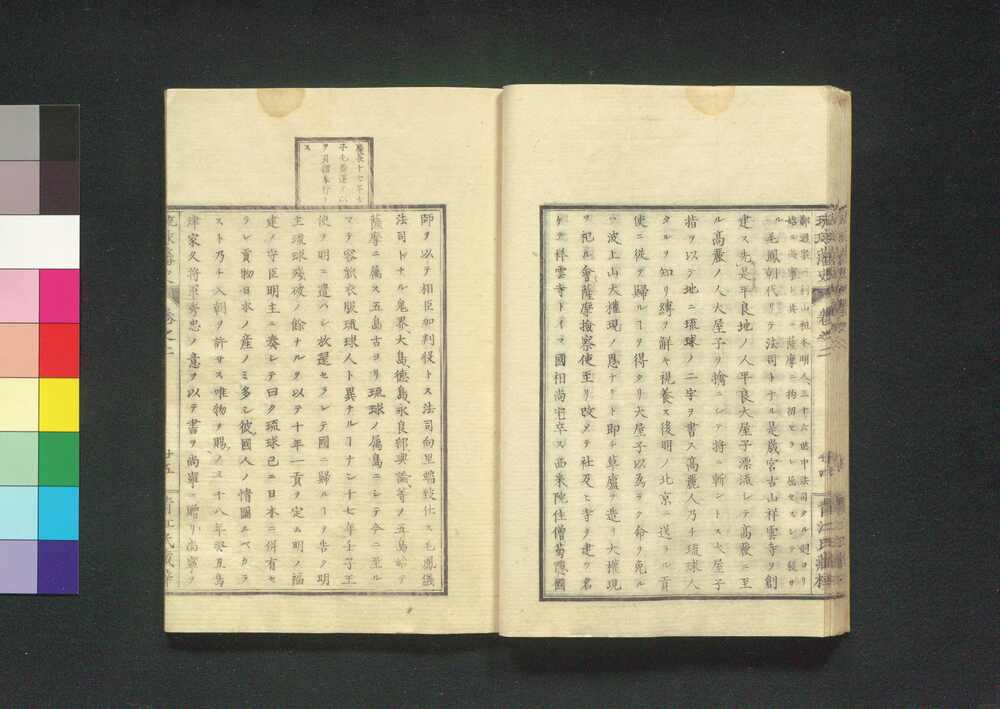 琉球藩史 卷之二
鄭迥字ハ利山祖ハ明人三十六姓中法司タル迥ヨリ
始ル尚寧ト共ニ薩摩ニ拘留セラレ屈セスシテ歿ス
毛鳳朝代リテ法司トナル是歳宮古山祥雲寺ヲ創
建ス先是平良地ノ人平良大屋子漂流シテ高麗ニ至
ル高麗ノ人大屋子ヲ擒ニシテ將ニ斬ントス大屋子
指ヲ以テ地ニ琉球ノ二字ヲ書ス高麗人乃チ琉球人
タルヲ知リ縛ヲ解キ視養ス後明ノ北京ニ送ラル貢
使ニ從テ歸ルヿヲ得タリ大屋子以為ラク命ヲ免ル
波上山大權現ノ恩ナリト即チ草廬ヲ造リ大權現
ヲ祀ル會薩摩撿察使至リ改メテ社及ヒ寺ヲ建ツ名
ケテ祥雲寺トイフ國相尚宏卒ス西來院住僧菊隱國
師ヲ以テ相臣加判役トス法司向里瑞致仕ス毛鳳儀
法司トナル鬼界、大島、德島、永良部、與論等ノ五島始テ
薩摩ニ屬ス五島古ヨリ琉球ノ屬島ニシテ今ニ至ル
マテ容貌衣服琉球人ト異ナルヿナシ十七年壬子王
使ヲ明ニ遣ハシ放還セラレテ國ニ歸ルヿヲ告ク明
主琉球殘破ノ餘ナルヲ以テ十年一貢ヲ定ム明ノ福
建ノ守臣明主ニ奏シテ曰ク琉球已ニ日本ニ併有セ
ラレ貢物日本ノ産ノミ多シ彼國人ノ情圖ルベカラ
スト乃チ入朝ヲ許サス唯物ヲ賜ノミ十八年癸丑島
津家久將軍秀忠ノ意ヲ以テ書ヲ尚寧ニ贈リ尚寧ヲ
廿五